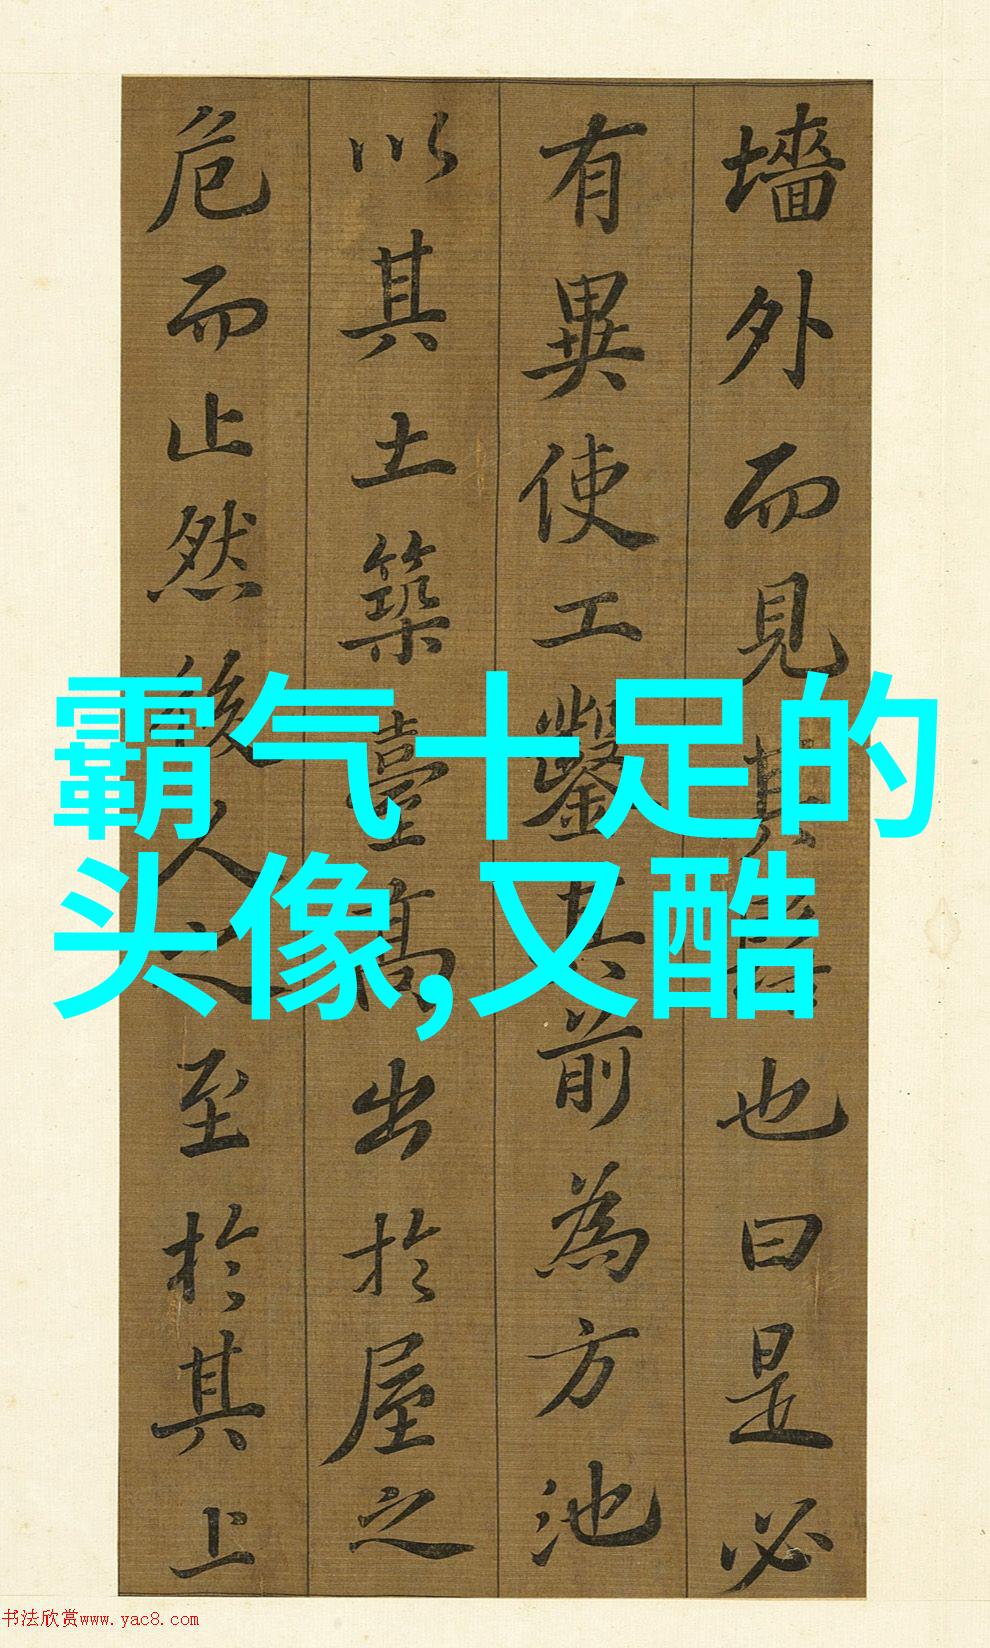 墻外而見其髻也曰是必
有異使工鑿其前為方池
以其土築臺高出於屋之
危而止然後人之至於其上
霸气十足的
头像,又酷
书法欣赏www.yac8.com